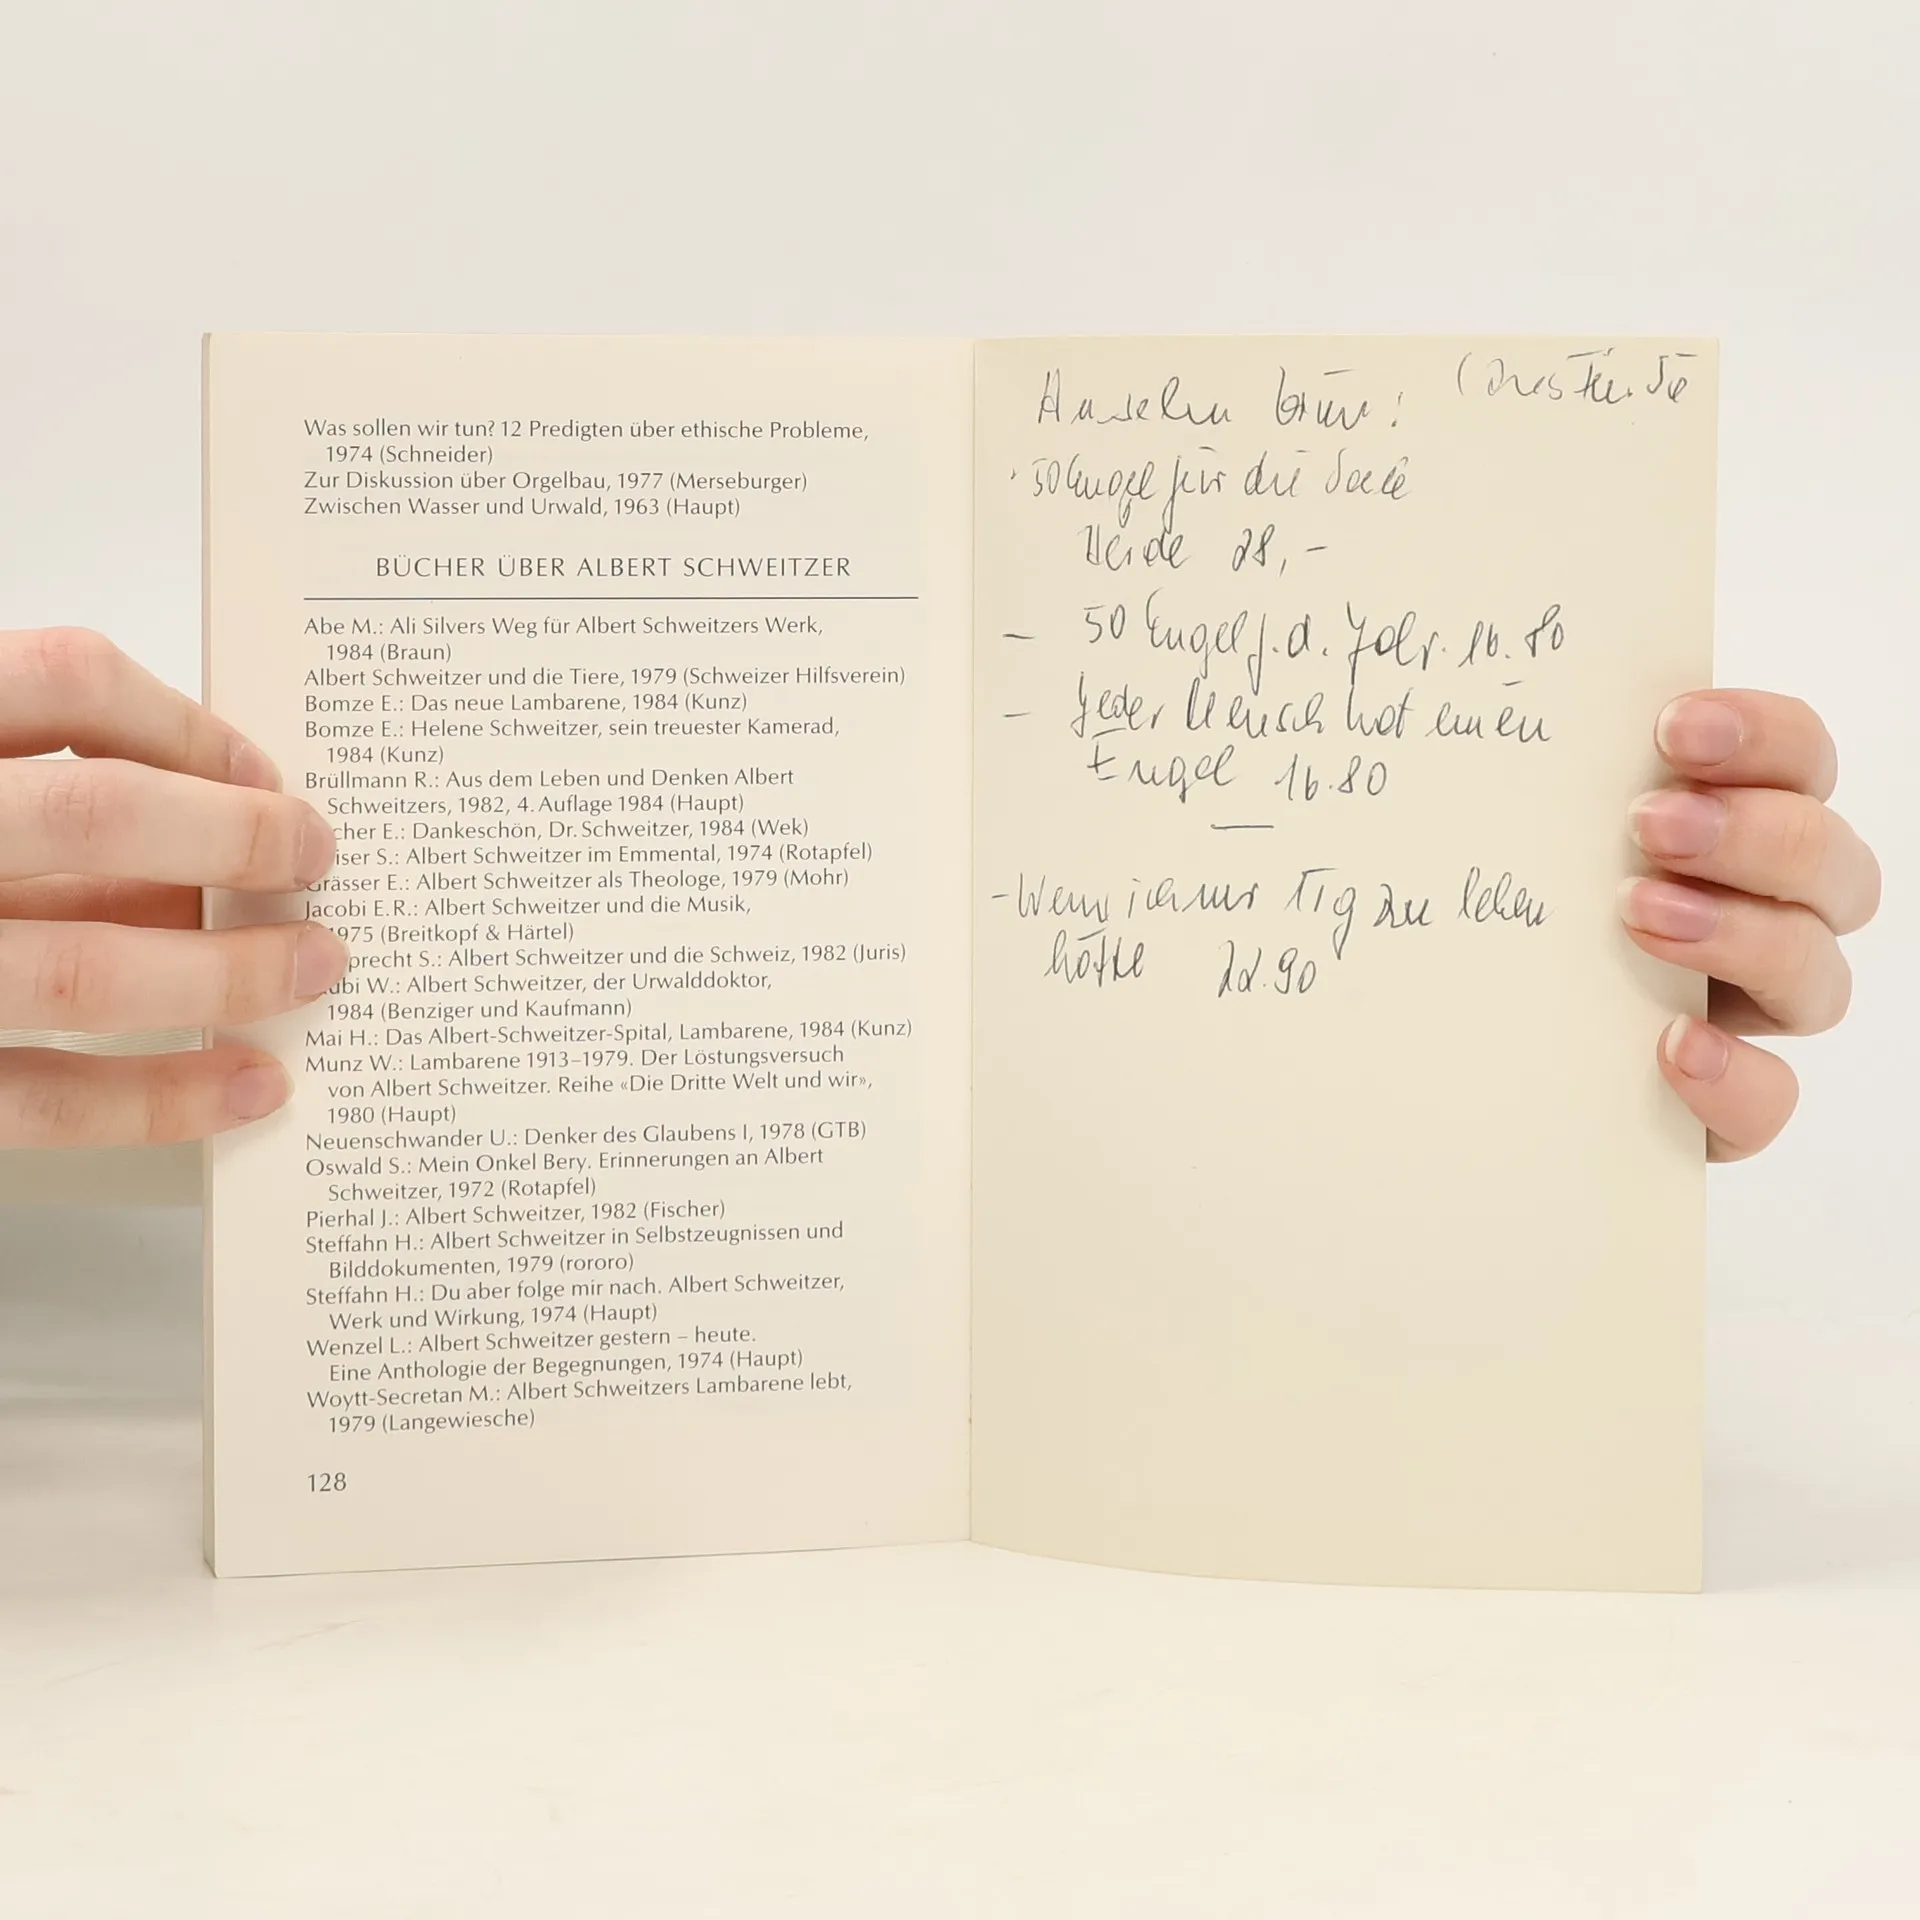 Was sollen wir tun? 12 Predigten über ethische Probleme,
1974 (Schneider)
Zur Diskussion über Orgelbau, 1977 (Merseburger)
Zwischen Wasser und Urwald, 1963 (Haupt)
BÜCHER ÜBER ALBERT SCHWEITZER
Abe M.: Ali Silvers Weg für Albert Schweitzers Werk,
1984 (Braun)
Albert Schweitzer und die Tiere, 1979 (Schweizer Hilfsverein)
Bomze E.: Das neue Lambarene, 1984 (Kunz)
Bomze E.: Helene Schweitzer, sein treuester Kamerad,
1984 (Kunz)
Brüllmann R.: Aus dem Leben und Denken Albert
Schweitzers, 1982, 4. Auflage 1984 (Haupt)
E.: Dankeschön, Dr. Schweitzer, 1984 (Wek)
S.: Albert Schweitzer im Emmental, 1974 (Rotapfel)
Grässer E.: Albert Schweitzer als Theologe, 1979 (Mohr)
Jacobi E.R.: Albert Schweitzer und die Musik,
1975 (Breitkopf & Härtel)
S.: Albert Schweitzer und die Schweiz, 1982 (Juris)
W.: Albert Schweitzer, der Urwalddoktor,
1984 (Benziger und Kaufmann)
Mai H.: Das Albert-Schweitzer-Spital, Lambarene, 1984 (Kunz)
Munz W.: Lambarene 1913–1979. Der Löstungsversuch
von Albert Schweitzer. Reihe «Die Dritte Welt und wir»,
1980 (Haupt)
Neuenschwander U.: Denker des Glaubens I, 1978 (GTB)
Oswald S.: Mein Onkel Bery. Erinnerungen an Albert
Schweitzer, 1972 (Rotapfel)
Pierhal J.: Albert Schweitzer, 1982 (Fischer)
Steffahn H.: Albert Schweitzer in Selbstzeugnissen und
Bilddokumenten, 1979 (rororo)
Steffahn H.: Du aber folge mir nach. Albert Schweitzer,
Werk und Wirkung, 1974 (Haupt)
Wenzel L.: Albert Schweitzer gestern – heute.
Eine Anthologie der Begegnungen, 1974 (Haupt)
Woytt-Secretan M.: Albert Schweitzers Lambarene lebt,
1979 (Langewiesche)
128
Anselm Grün:
50 Engel für die Seele
28,-
- 50 Engel f. d. Jahr. 16.80
- Jeder Mensch hat einen
Engel 16.80
- Wenn ich nur 1 Tg zu leben
hätte 22.90